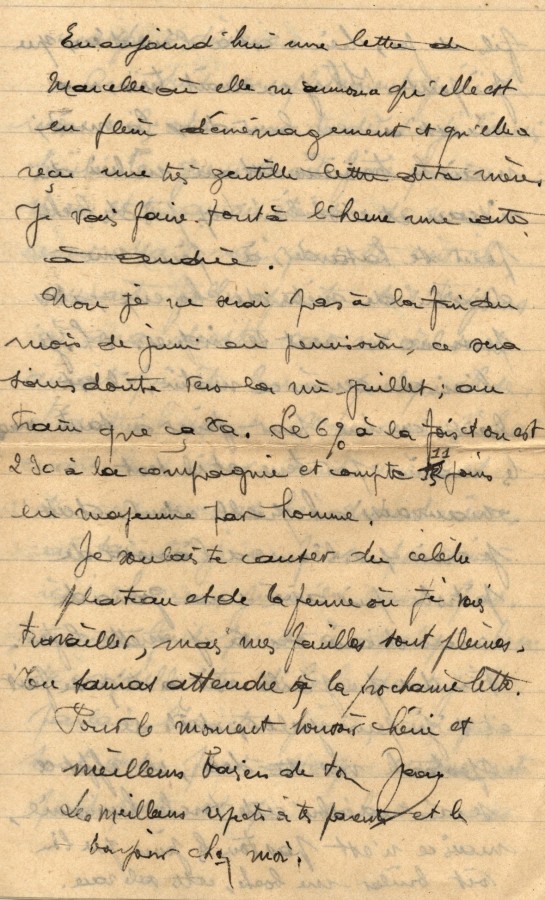 Eu aujourd'hui une lettre de
Marcelle où elle m'annonce qu'elle est
en plein déménagement et qu'elle a
reçu une très gentille lettre de ta mère.
Je vais faire tout à l'heure une carte
à Andrée.
Non je ne serai pas à la fin du
mois de juin en permission, ce sera
sans doute vers la mi juillet; au
train que ça va. Le 6% à la fois et on est
230 à la compagnie et compte 11 jours
en moyenne par homme.
Je voulais te causer du célèbre
plateau et de la ferme où je vais
travailler, mais mes feuilles sont pleines.
Tu sauras attendre à la prochaine lettre.
Pour le moment bonsoir chérie et
meilleurs baisers de ton Jean
Les meilleurs respects à tes parents et le
bonjour chez moi.